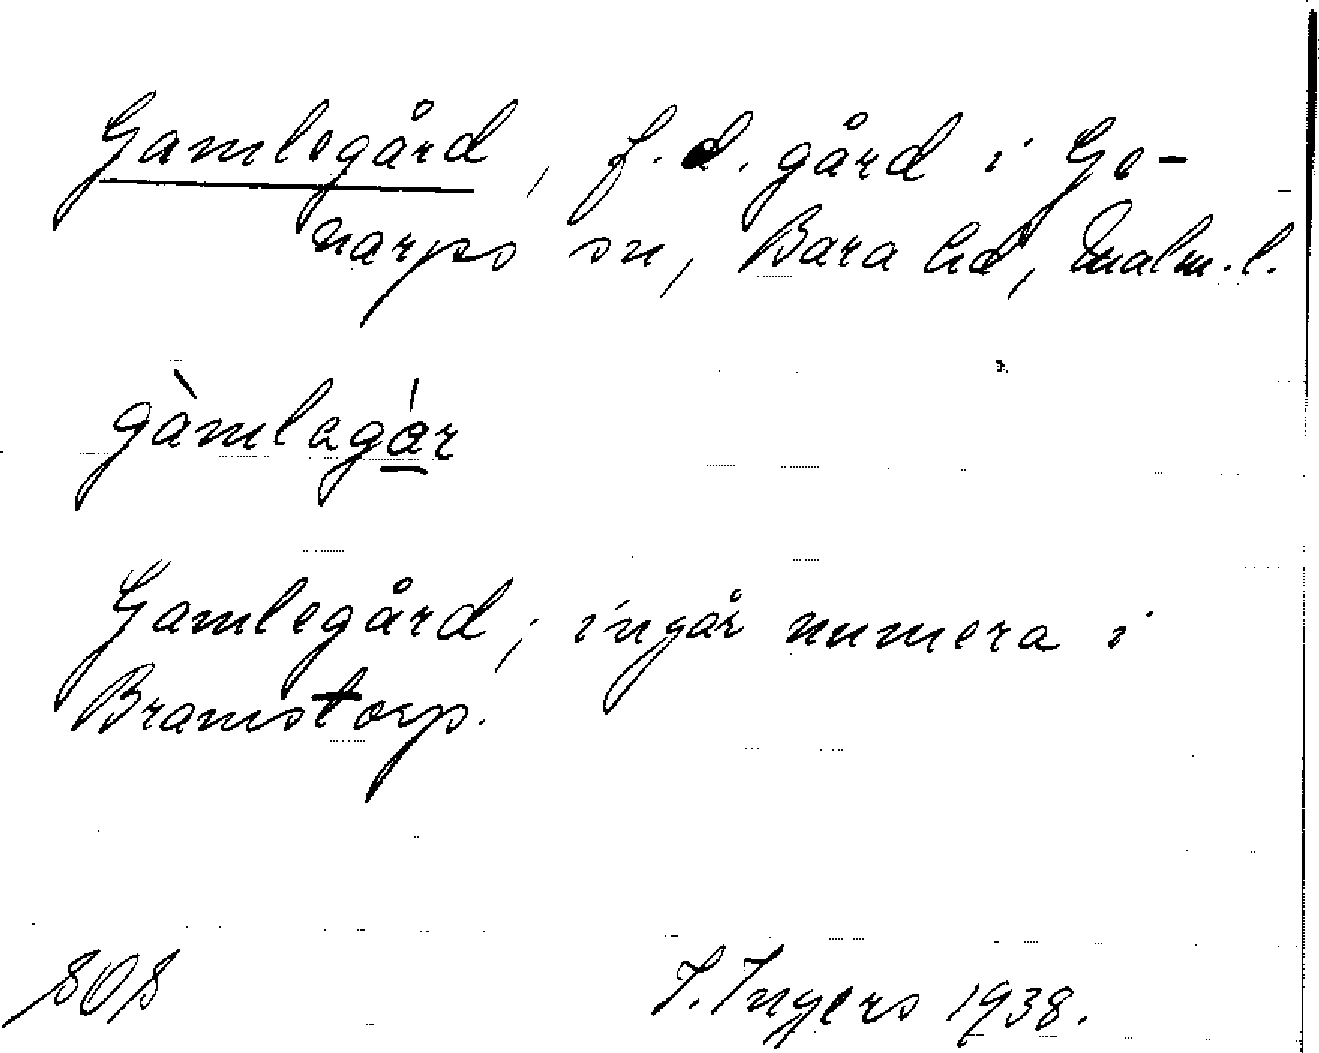 Gamlegård, f.d. gård i Ge-
narps sn, Bara hd, Malm.l.
gàmlagár
Gamlegård; ingår numera i
Bramstorp.
SOS
I. Ingers 1938.